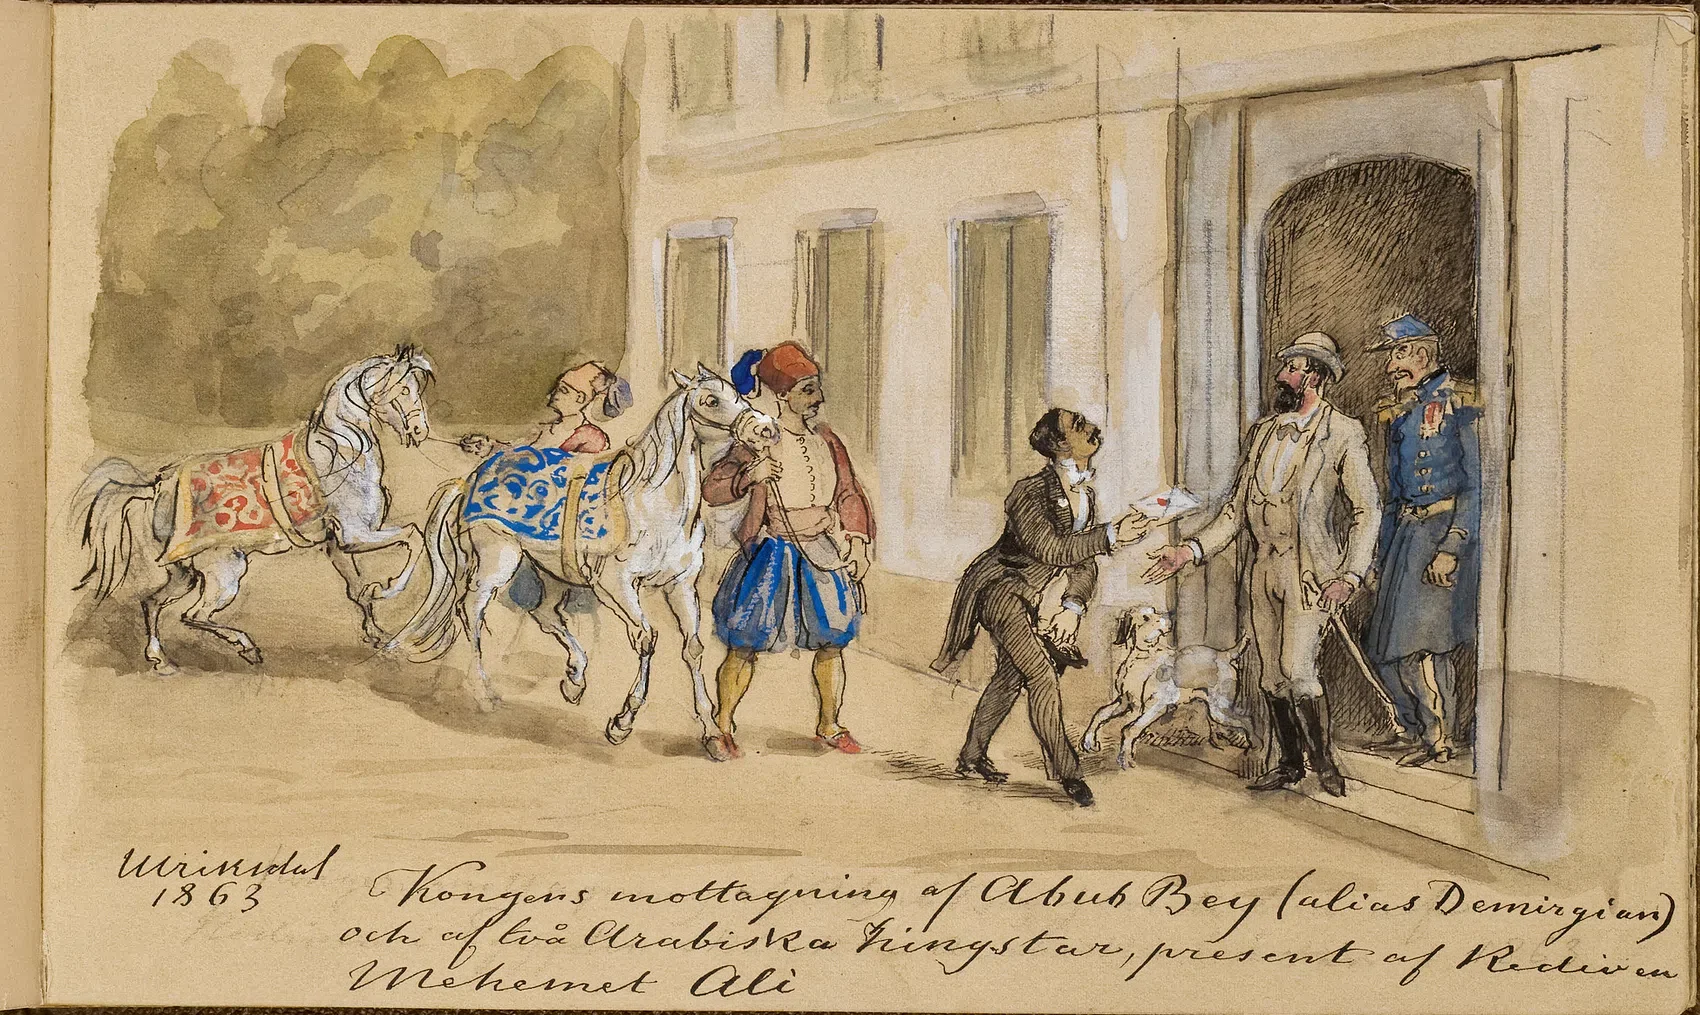 Ulriksdal
1863
Kongens mottagning af Abub Bey (alias Demirgian)
och af två Arabiska hingstar, present af Kediven
Mehemet Ali